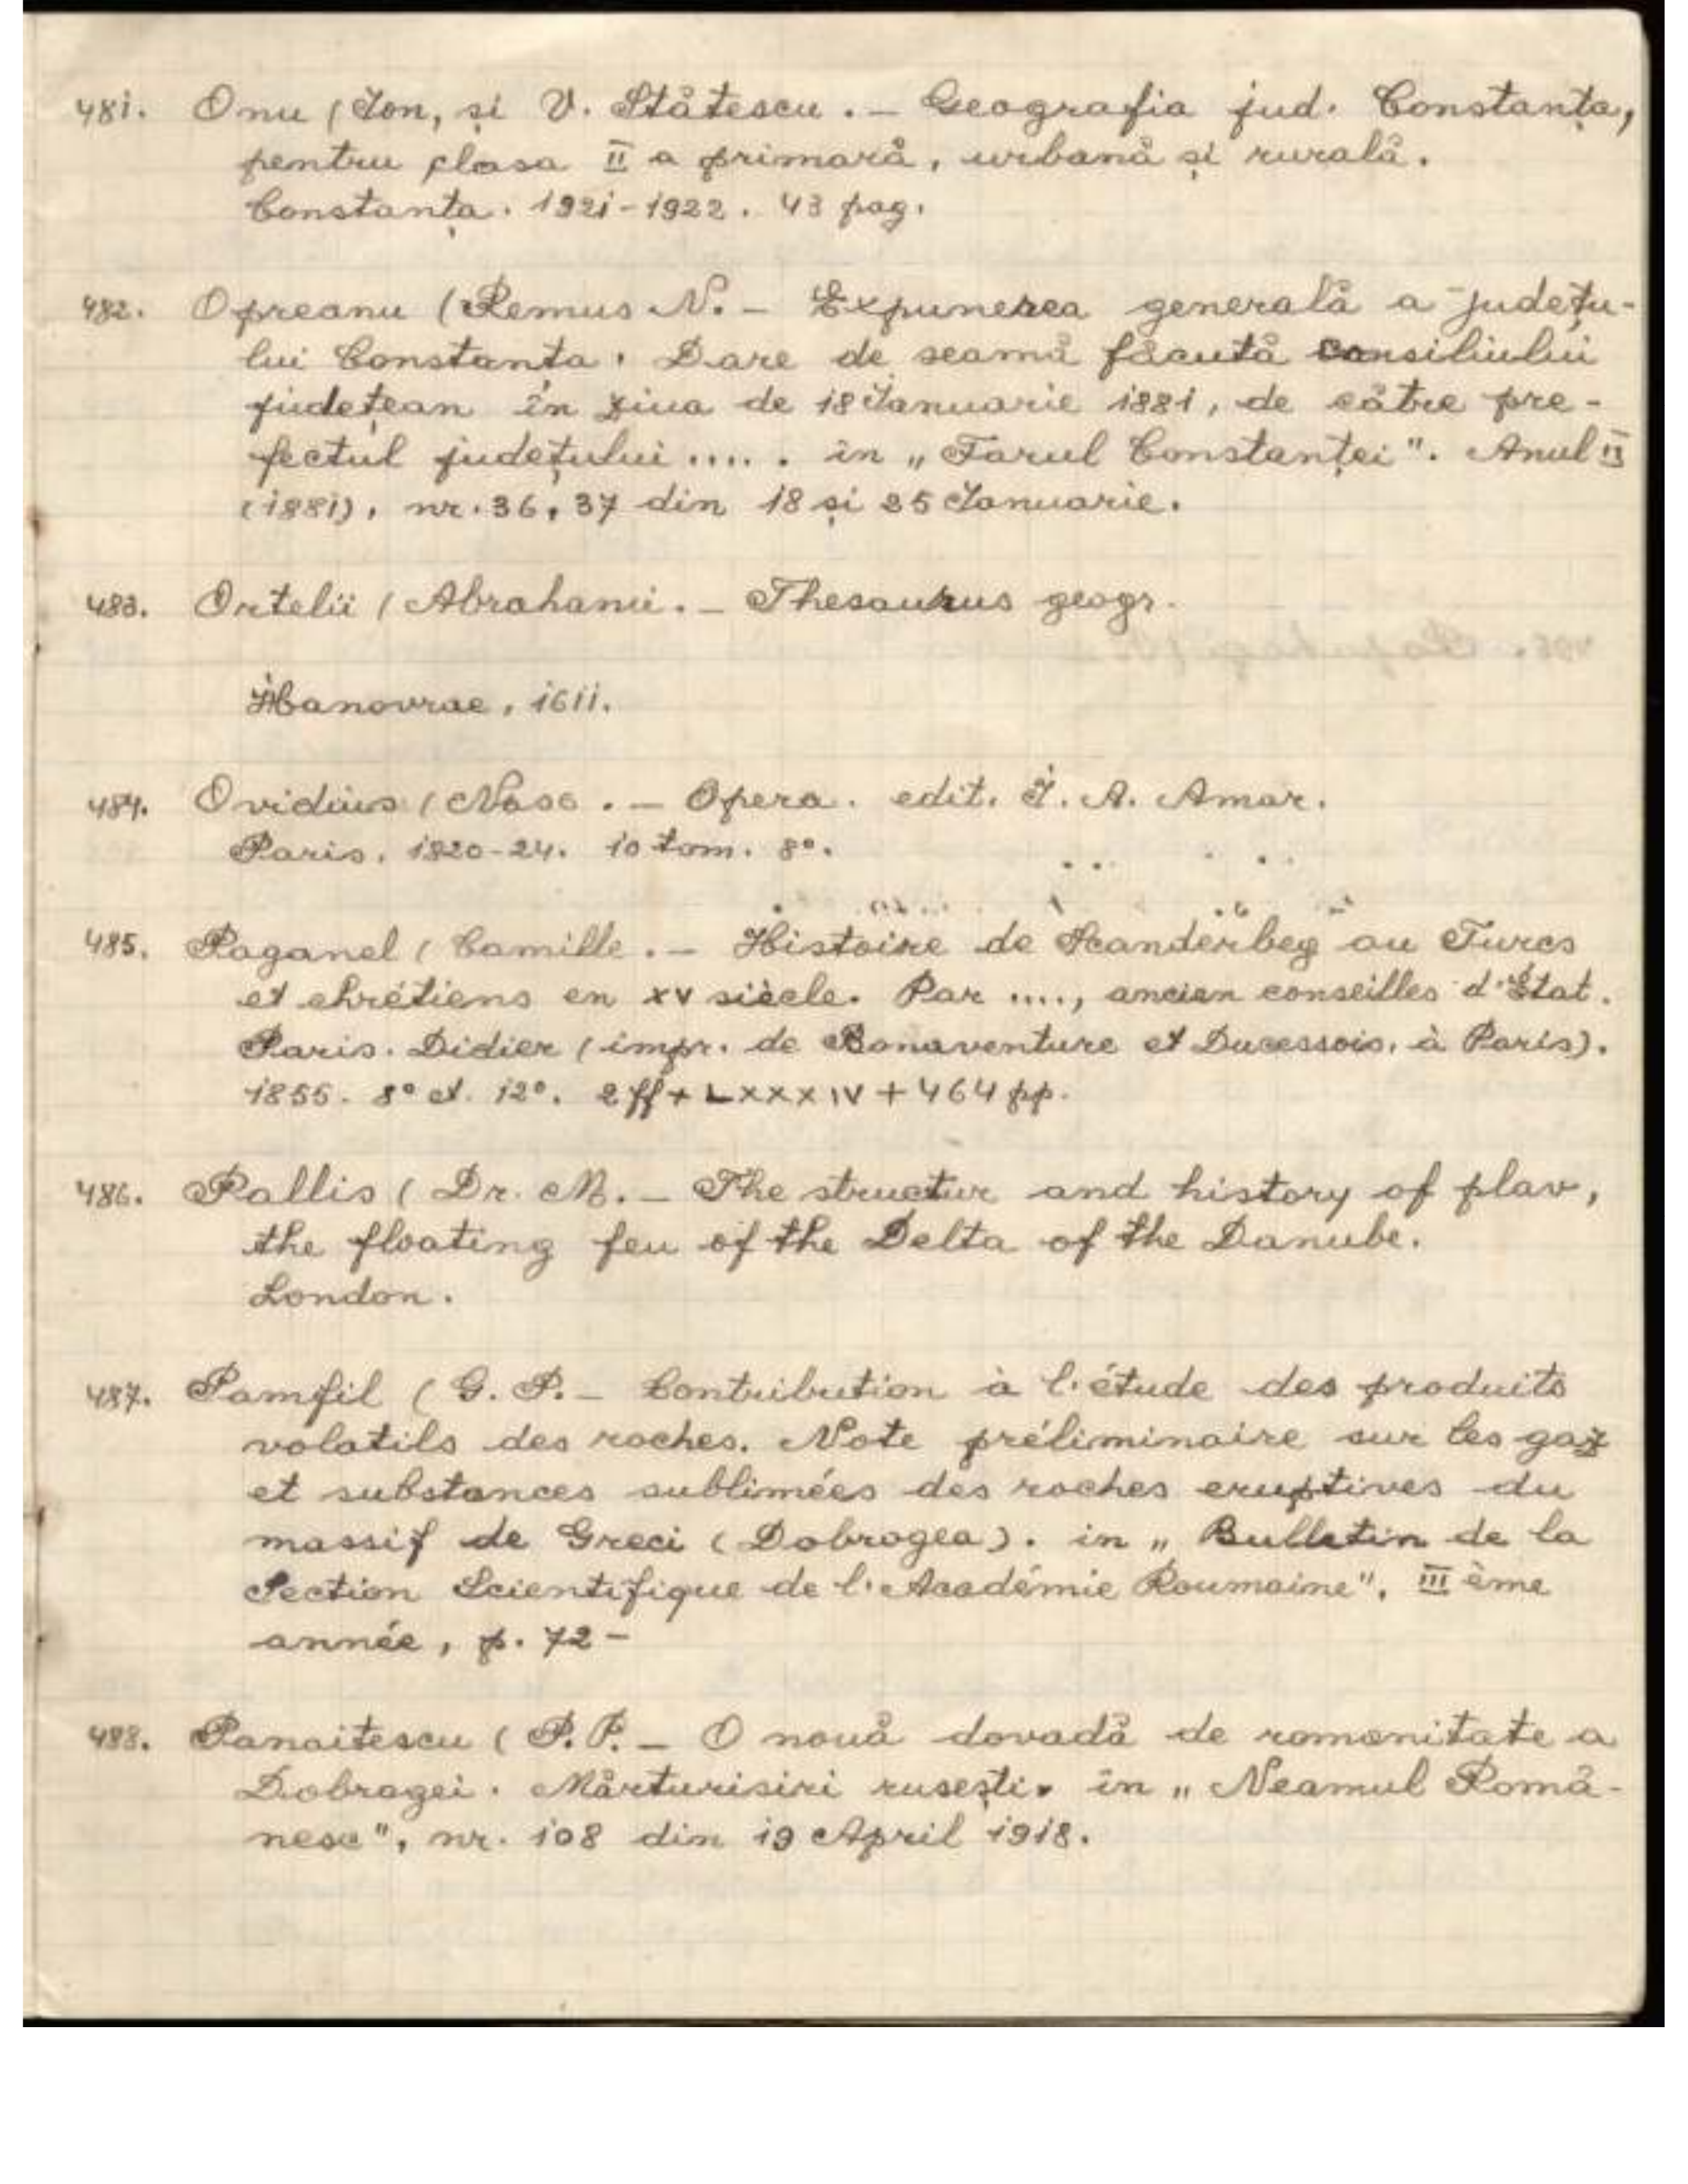 481. Onu (Ion, și V. Stătescu. – Geografia jud. Constanța,
pentru clasa II a primară, urbană și rurală.
Constanța. 1921-1922. 43 pag.
482. Opreanu (Remus N. – Expunerea generală a județu-
lui Constanța. Dare de seamă făcută consiliului
județean în ziua de 18 Ianuarie 1881, de către pre-
fectul județului ..... in „Farul Constanței". Anul II
(1881), nr. 36, 37 din 18 și 25 Ianuarie.
483. Ortelii (Abrahami. – Thesaurus geogr.
Hanovrae, 1611.
484. Ovidius (Naso. – Opera. edit. J. A. Amar.
Paris. 1820-24. 10 tom. 8°.
485. Paganel (Camille. – Histoire de Scanderbeg ou Turcs
et chrétiens en XV siècle. Par ...., ancien conseilles d'État.
Paris. Didier (impr. de Bonaventure et Ducessois, à Paris).
1855. 8° et. 12°. 2 ff + LXXXIV + 464 pp.
486. Pallis (Dr. M. – The structur and history of plav,
the floating feu of the Delta of the Danube.
London.
487. Pamfil (G. P. – Contribution à l'étude des produits
volatils des roches. Note préliminaire sur les gaz
et substances sublimées des roches eruptives du
massif de Greci (Dobrogea). in „Bulletin de la
Section Scientifique de l'Académie Roumaine", III ème
année, p. 72 –
488. Panaitescu (P. P. – O nouă dovadă de romanitate a
Dobrogei. Mărturisiri rusești. in „Neamul Româ-
nesc", nr. 108 din 19 April 1918.